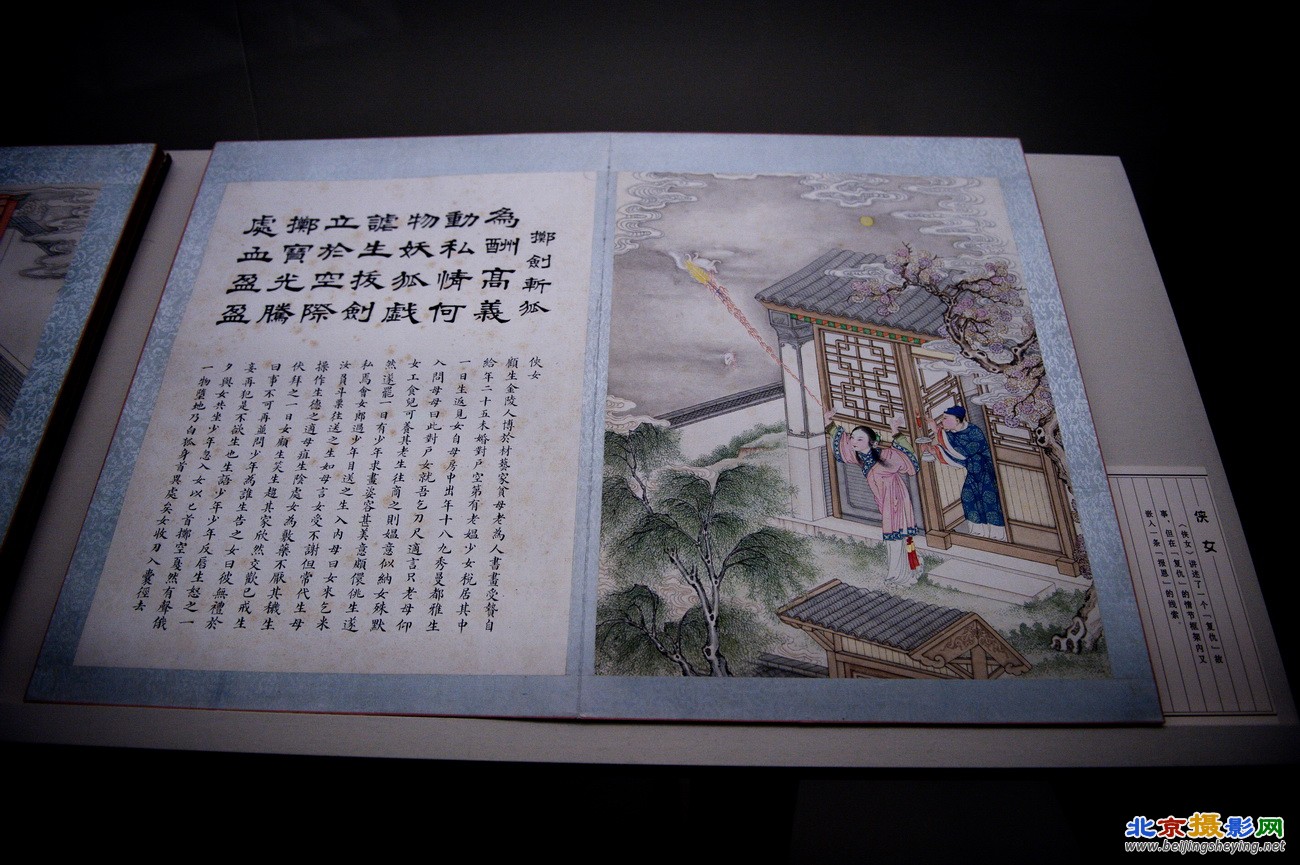 擲劍斬狐
為酬高義
動私情何
物妖狐戯
謔生拔劍
立於空際
擲寶光騰
處血盈盈
俠女
顧生金陵人博於材藝家貧母老為人書畫受贄自
給年二十五未婚對戶空第有老媼少女稅居其中
一日生返見女自母房中出年十八九秀曼都雅生
入問母母曰此對戶女就吾乞刀尺適言只老母仰
女工食兒可養其老生往商之則媼意似納女殊默
然遂罷一日有少年求畫姿容甚美意頗儇佻生遂
私焉會女郎過少年目送之生入內母曰女求乞米
汝負斗粟往送之生如母言女受不謝但常代生母
操作生德之適母疽生陰處女為敷藥不厭其穢生
伏拜之一日女顧生笑生趨其家欣然交歡已戒生
曰事不可再並問少年為誰生告之女曰彼無禮於
妾再犯是不欲生也生語少年少年反唇生怒之一
夕與女共坐少年急入女以匕首擲空戛然有聲俄
一物墮地乃白狐身首異處矣女收刀入囊徑去
侠女
《侠女》讲述了一个“复仇”故
事，但在“复仇”的情节框架内又
嵌入一条“报恩”的线索
北京摄影网
www.beijingsheying.net